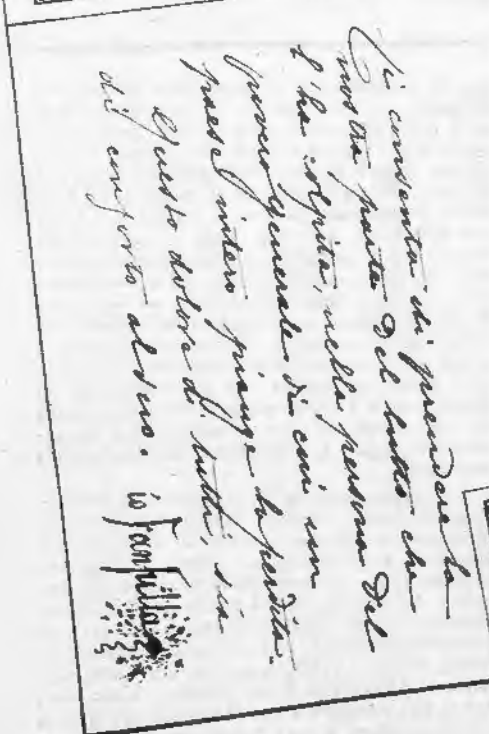 Ci consenta di prendere la
nostra parte del lutto che
l'ha colpita, nella persona del
povero Generale di cui un
paese intero piange la perdita.
Questo dolore di tutti, sia
di conforto al suo.